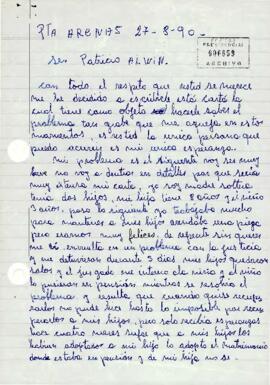 PTA ARENAS 27-8-90.-
ARCHIVO
Sr. Patricio ALWIN.
con todo el respeto que usted se merece
me he decidido a escribirle esta carta la
cual tiene como objeto hacerle saber el
problema tan grande que me aqueja en estos
momentos, y es usted la unica persona que
puede y es mi unica esperanza.
Mi problema es el siguiente voy ser muy
breve no voy a entrar en detalles por que seria
muy mi carta, yo soy madre soltera
tengo dos hijos, mi hija tiene 8 años y el niño
5 años, para lo siguiente yo trabajaba mucho
para mantener a mis hijos arrendaba una pieza
pero eramos muy felices, de repente sin querer
me envuelta en un problema con la justicia
y me detuvieron durante 5 dias mis hijos quedaron
solos y el juzgado me interno ela niña y el niño
lo pusieron en pension, mientras se resolvia el
problema y resulta que cuando quise recupe-
rarlos no pude hice hasta lo imposible por recu-
perarlos a mis hijos, pero solo recibia esperanzas
hace cuatro meses supe que a mis hijos los
habian adoptado a mi hijo lo adopto el matrimonio
donde estaba en pension y de mi hija no se